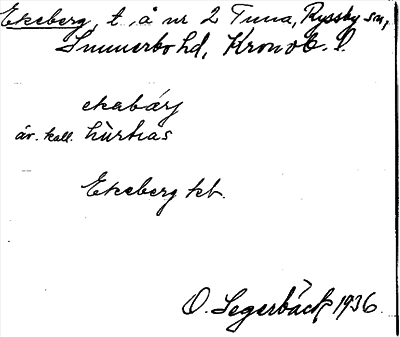 Ekeberg, t. å nr 2 Tuna, Ryssby sn,
Sunnerbo hd, Kronob. l.
ekabärj
äv. kall. hùrtıas
Ekeberg kt.
O. Segerbäck 1936.